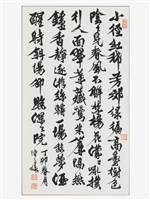 小徑紅稀芳郊綠遍高臺樹色
陰々見春風不解禁楊花濛々亂撲
行人面翠葉藏鶯朱簾隔燕
鑪香靜逐游絲轉一場愁夢酒
醒時斜陽卻照深々院 丁卯春月